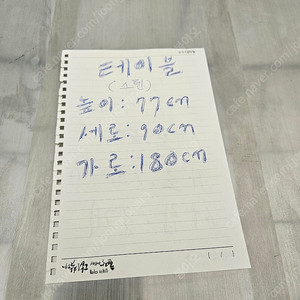 테이블
(스텐)
높이: 77cm
세로: 90cm
가로: 180cm